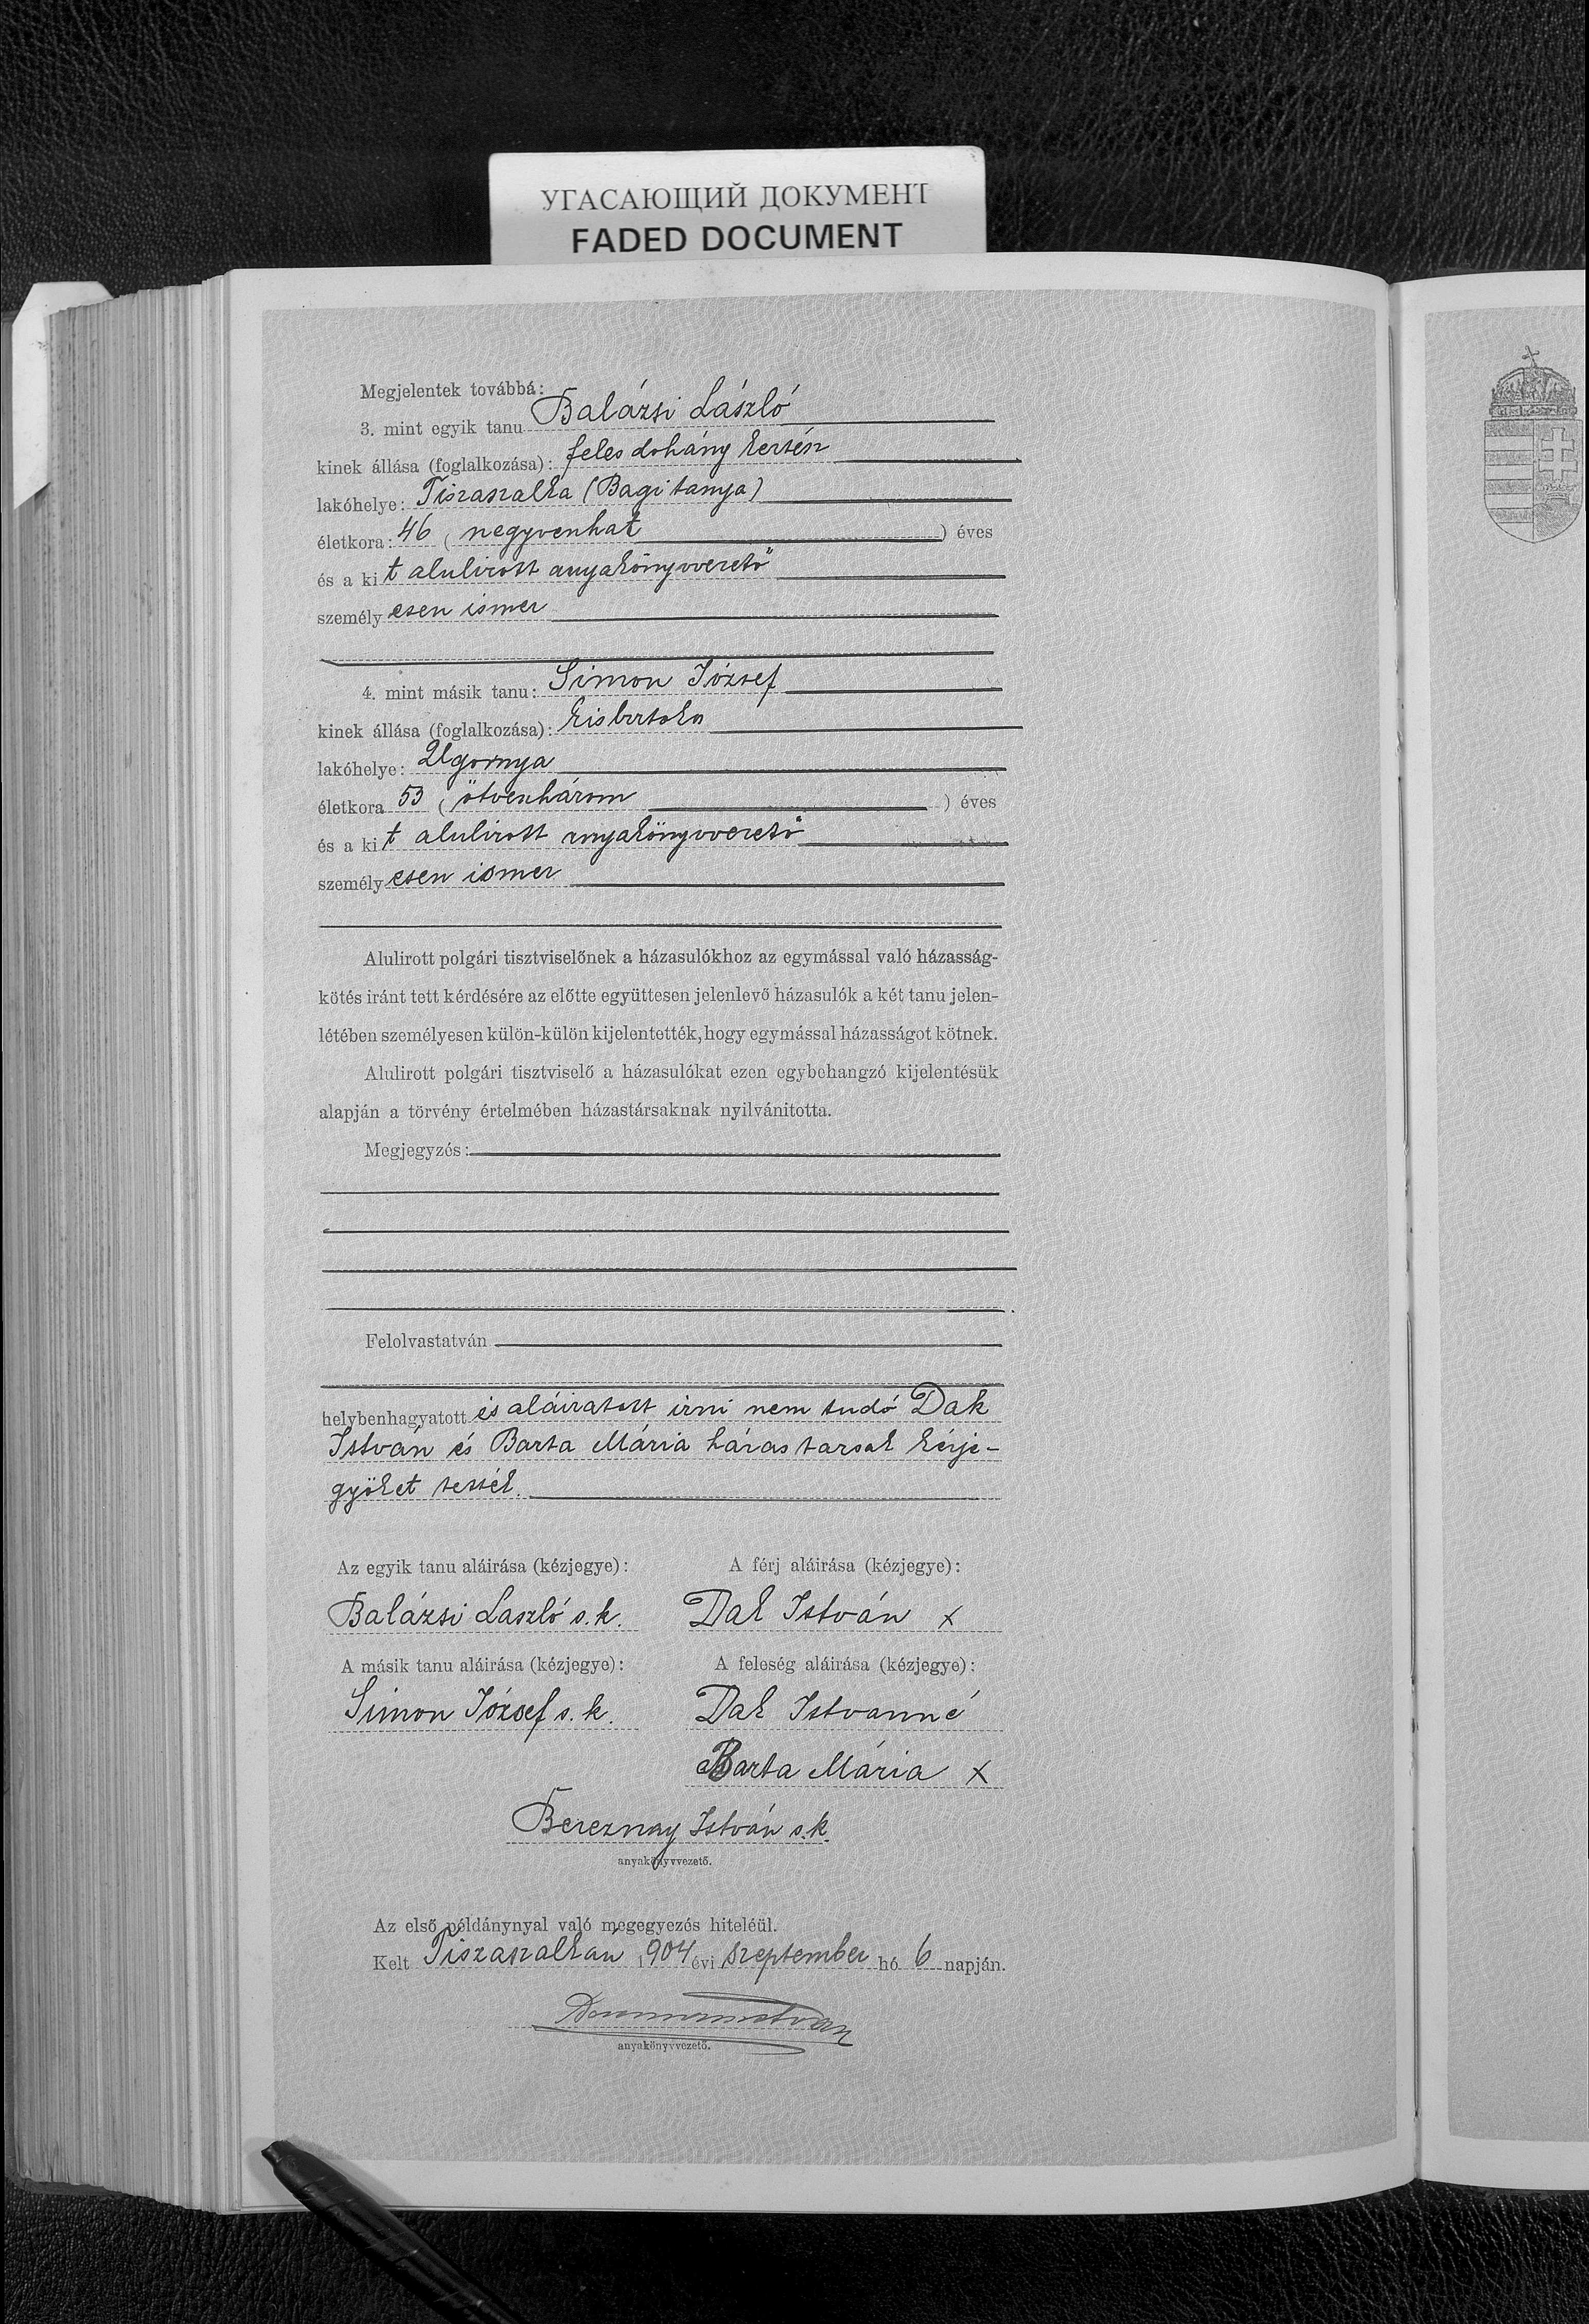 УГАСАЮЩИЙ ДОКУМЕНТ
FADED DOCUMENT
Megjelentek továbbá:
3. mint egyik tanu Balázsi László
kinek állása (foglalkozása): feles dohány kertész
lakóhelye: Tiszaszalka (Bagi tanya)
életkora: 46 ( negyvenhat ) éves
és a kit alulirott anyakönyvvezető
személyesen ismer
4. mint másik tanu: Simon József
kinek állása (foglalkozása): kisbirtokos
lakóhelye: Ugornya
életkora 53 ( ötvenhárom ) éves
és a kit alulirott anyakönyvvezető
személyesen ismer
Alulirott polgári tisztviselőnek a házasulókhoz az egymással való házasság-
kötés iránt tett kérdésére az előtte együttesen jelenlevő házasulók a két tanu jelen-
létében személyesen külön-külön kijelentették, hogy egymással házasságot kötnek.
Alulirott polgári tisztviselő a házasulókat ezen egybehangzó kijelentésük
alapján a törvény értelmében házastársaknak nyilvánitotta.
Megjegyzés:
Felolvastatván
helybenhagyatott és aláiratott irni nem tudó Dak
István és Barta Mária házastarsak kézje-
gyöket tették.
Az egyik tanu aláirása (kézjegye): A férj aláirása (kézjegye):
Balázsi László s.k. Dak István x
A másik tanu aláirása (kézjegye): A feleség aláirása (kézjegye):
Simon József s.k. Dak Istvanné
Barta Mária x
Bereznay István s.k.
anyakönyvvezető.
Az első példánynyal való megegyezés hiteléül.
Kelt Tiszaszalkán 1904 évi szeptember hó 6 napján.
anyakönyvvezető.